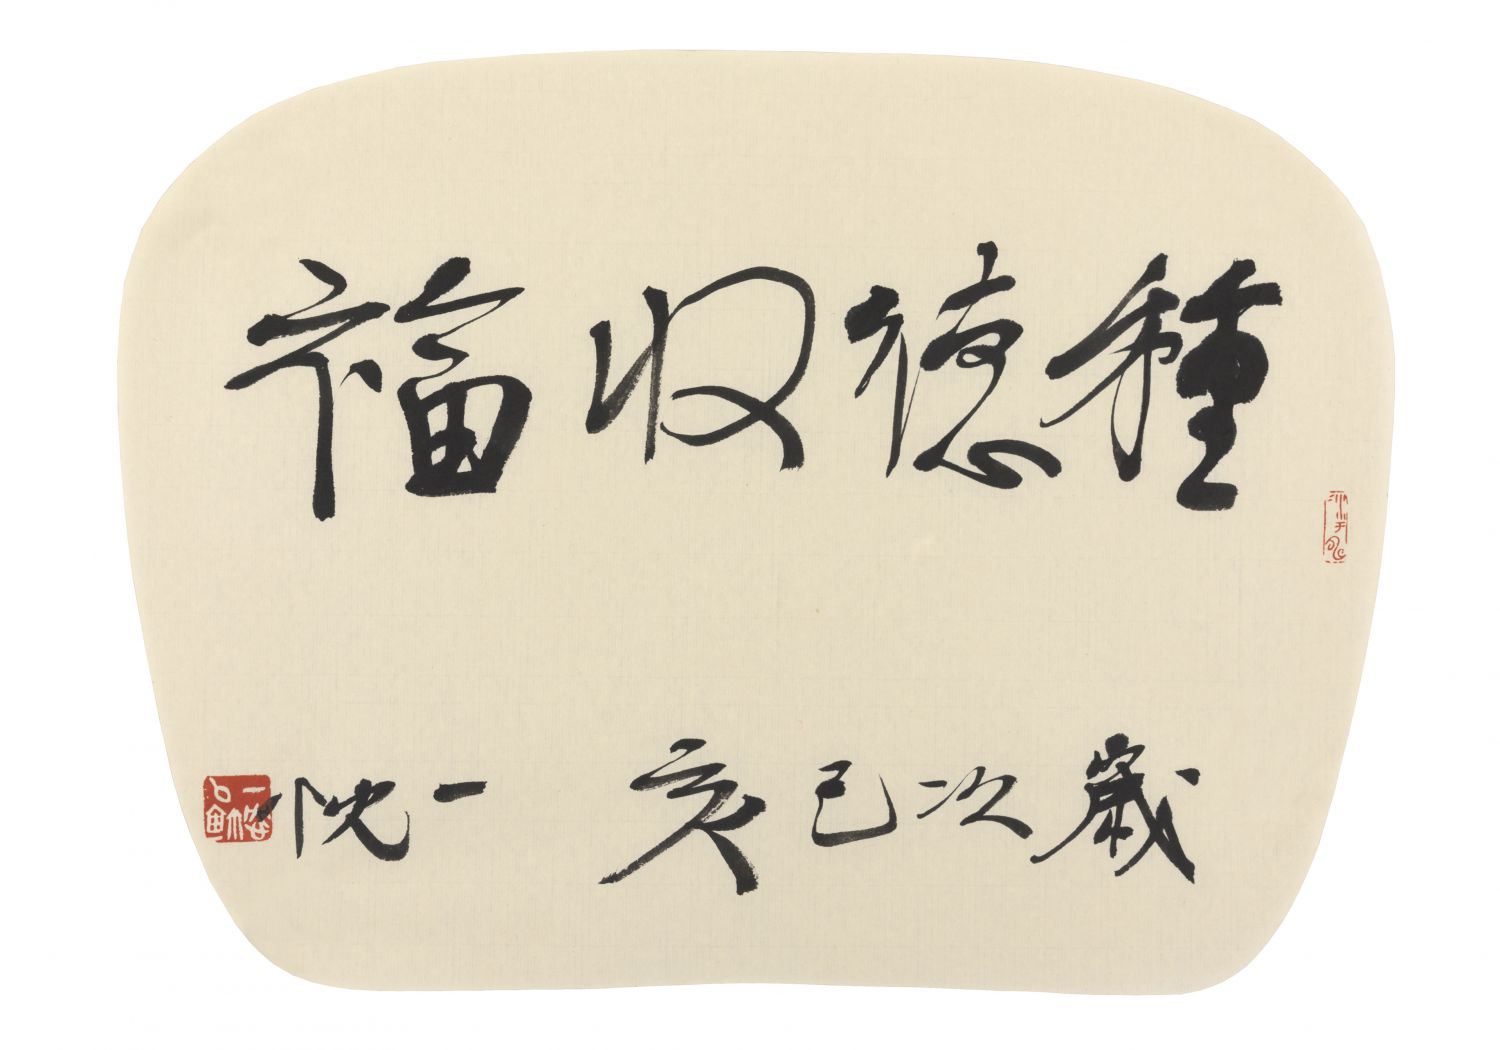 種德收福
歲次己亥
一忱